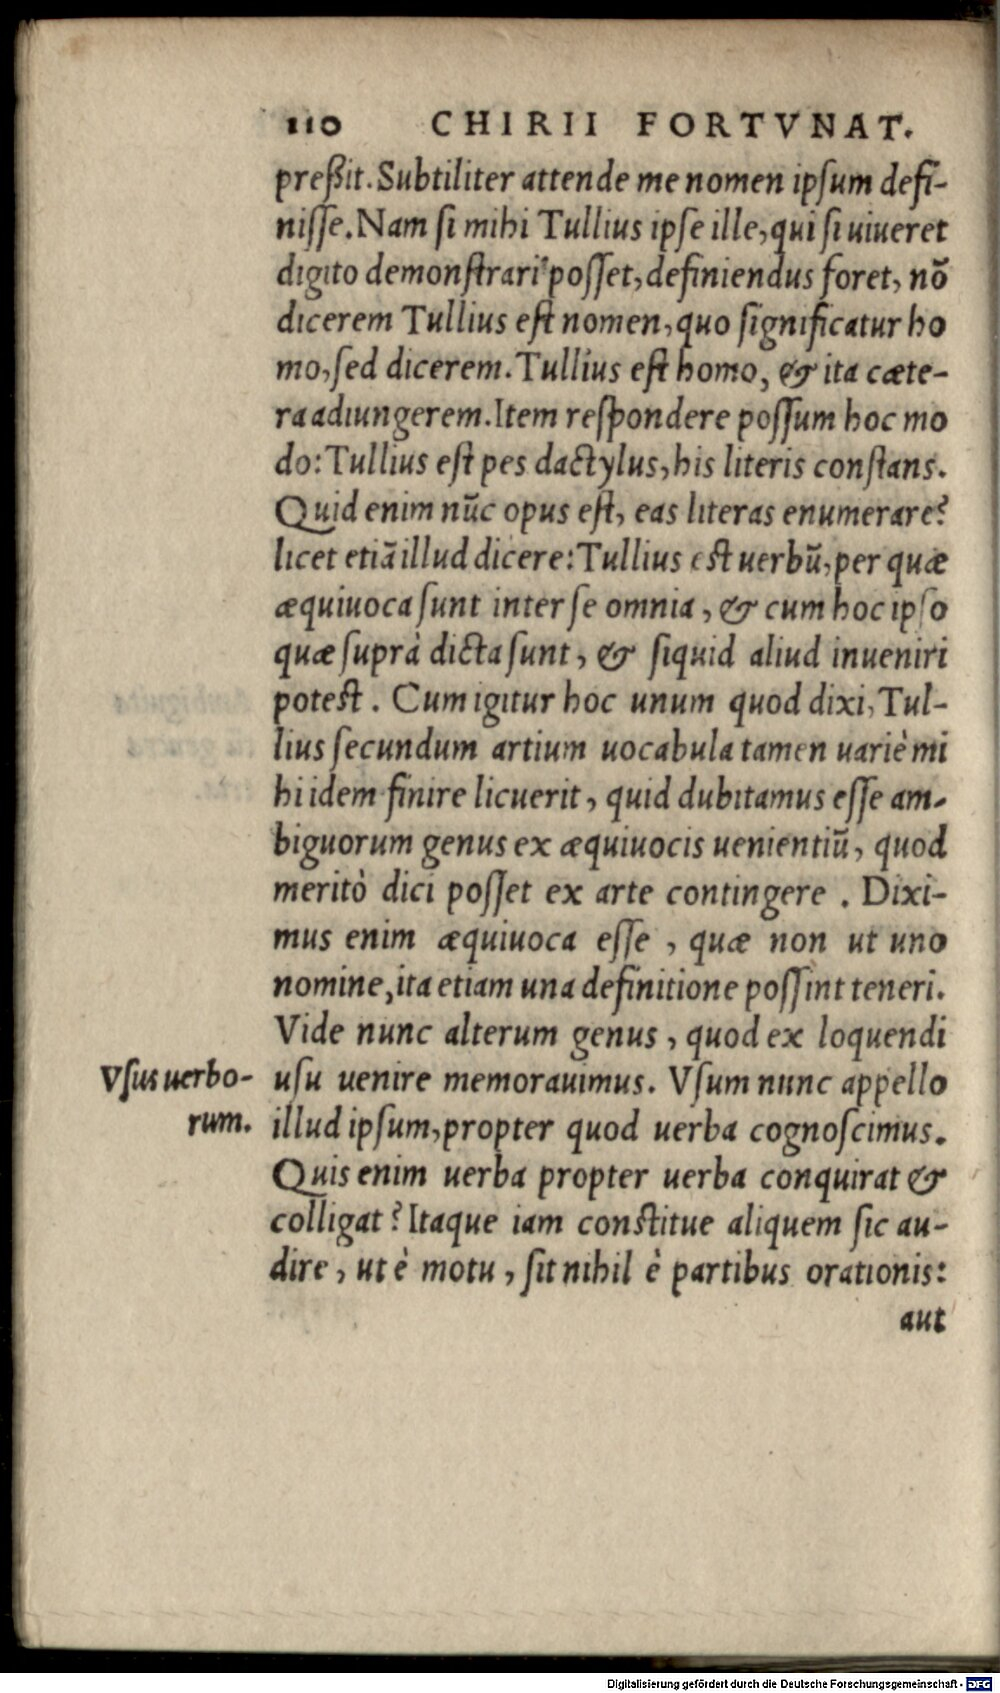 110 CHIRII FORTVNAT.
preßit. Subtiliter attende me nomen ipsum defi-
nisse. Nam si mihi Tullius ipse ille, qui si uiueret
digito demonstrari posset, definiendus foret, nō
dicerem Tullius est nomen, quo significatur ho
mo, sed dicerem. Tullius est homo, & ita cæte-
ra adiungerem. Item respondere possum hoc mo
do: Tullius est pes dactylus, his literis constans.
Quid enim nūc opus est, eas literas enumerare?
licet etiā illud dicere: Tullius est uerbū, per quæ
æquiuoca sunt inter se omnia, & cum hoc ipso
quæ suprà dicta sunt, & siquid aliud inueniri
potest. Cum igitur hoc unum quod dixi, Tul-
lius secundum artium uocabula tamen uariè mi
hi idem finire licuerit, quid dubitamus esse am-
biguorum genus ex æquiuocis uenientiū, quod
meritò dici posset ex arte contingere. Dixi-
mus enim æquiuoca esse, quæ non ut uno
nomine, ita etiam una definitione possint teneri.
Vide nunc alterum genus, quod ex loquendi
Vsus uerbo-
rum.
usu uenire memorauimus. Vsum nunc appello
illud ipsum, propter quod uerba cognoscimus.
Quis enim uerba propter uerba conquirat &
colligat? Itaque iam constitue aliquem sic au-
dire, ut è motu, sit nihil è partibus orationis:
aut
Digitalisierung gefördert durch die Deutsche Forschungsgemeinschaft - DFG